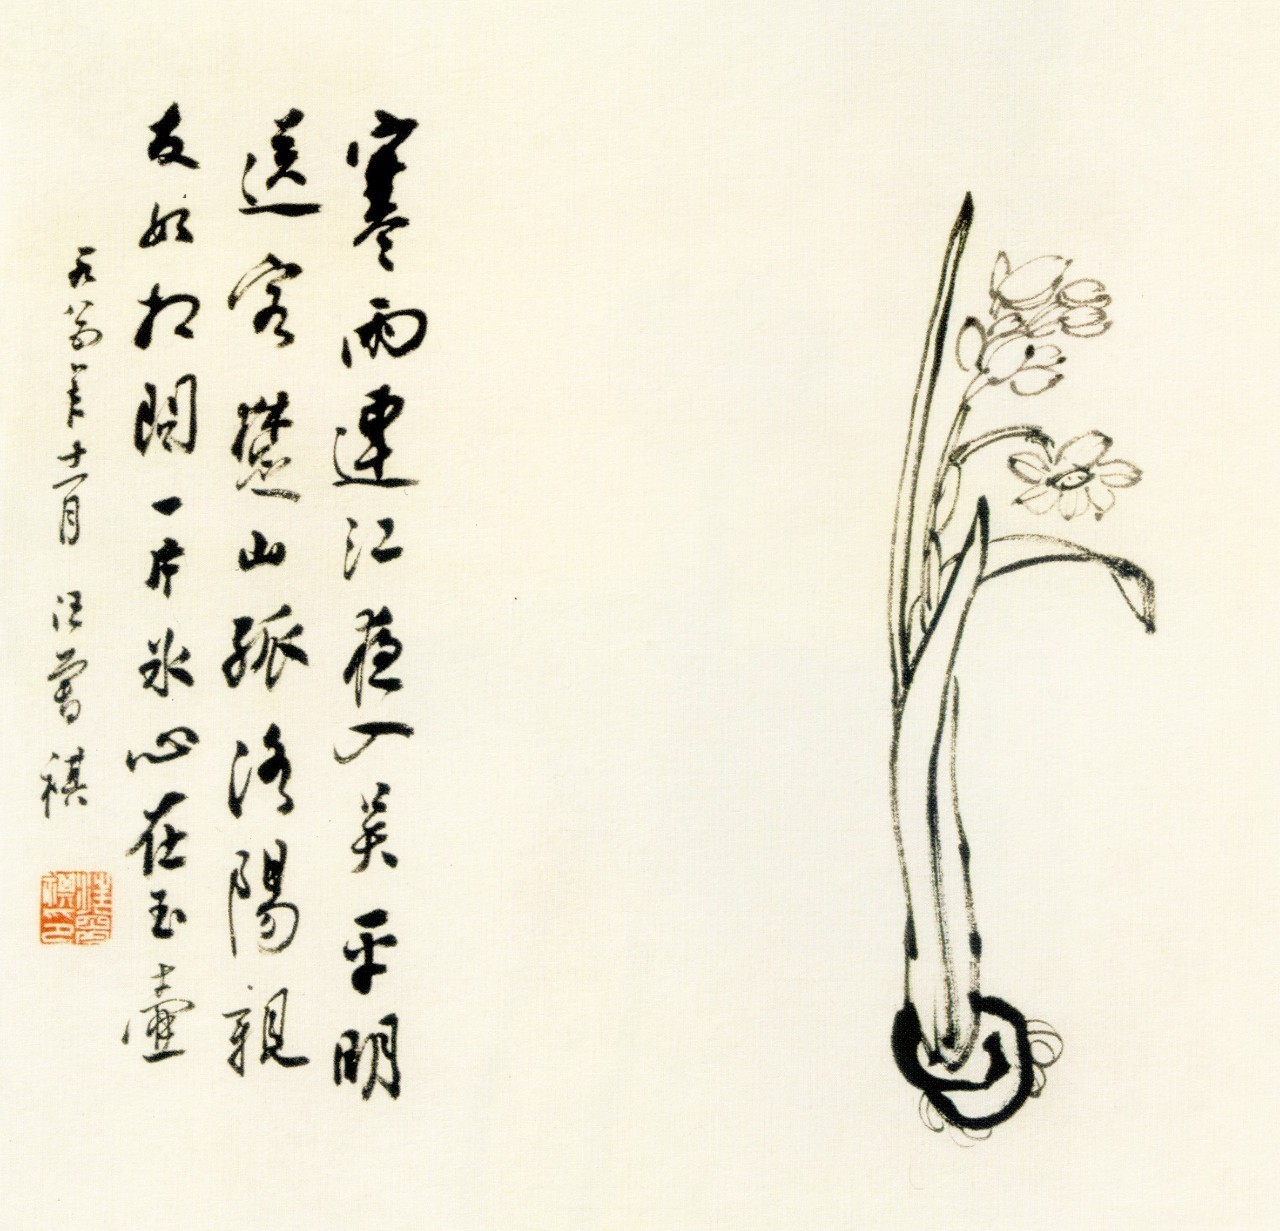 寒雨連江夜入吴平明
送客楚山孤洛陽親
友如相問一片氷心在玉壺
年十一月 汪曾祺
汪曾祺印